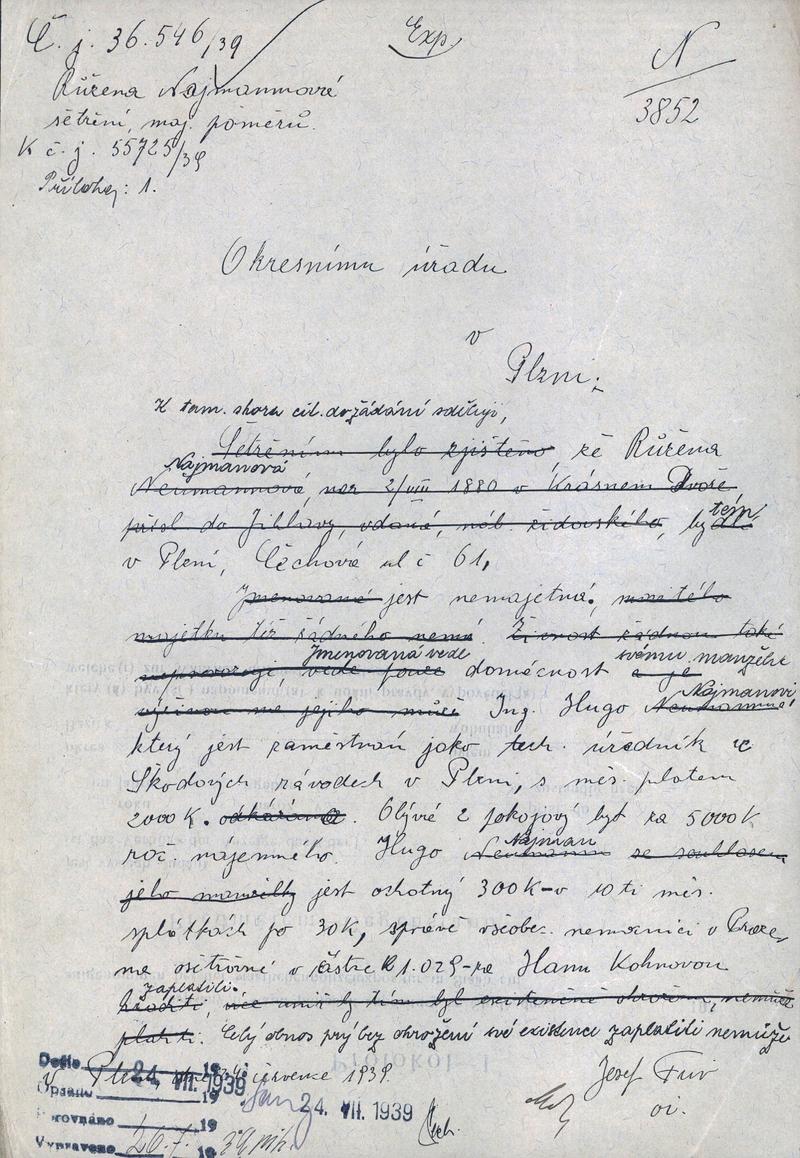 Č. j. 36.546/39
Exp.
N
3852
Růžena Najmannová
šetření, maj. poměrů.
K č. j. 55725/39
Příloha: 1.
Okresnímu úřadu
v
Plzni.
K tam. shora cit. dožádání sděluji,
Šetřením bylo zjištěno, že Růžena
Najmanová
Neumannová, nar 2/VIII 1880 v Krásném Dvoře
přísl do Jihlavy, vdaná, náb. židovského, bytem
v Plzni, Čechova ul č 61,
Jmenovaná jest nemajetná.
majetku též žádného nemá. Živnost žádnou také
Jmenovaná vede svému manželu
neprovozuji, vede pouze domácnost a je
Najmanovi
na jejího muže Ing. Hugo Neumanna,
který jest zaměstnán jako tech. úředník ve
Škodových závodech v Plzni, s měs. platem
2000 K. odkázána. Obývá 2 pokojový byt za 5000 K
Najman
roč. nájemného. Hugo Neumann se souhlasem
jeho manželky jest ochotný 300 K v 10 ti měs.
splátkách po 30 K, správě všeobec. nemocnici v Praze,
na ošetřovné v částce K 1.029 za Hanu Kohnovou
zaplatiti.
hraditi, více aniž by tím byl existenčně ohrožen, nemůže
platiti. Celý obnos prý bez ohrožení své existence zaplatiti nemůže
V Plzni července 1939.
Došlo 19
24. VII. 1939
Opsáno 19
24 VII 1939
Porovnáno 19
Vypraveno 26.7. 19 39
Josef